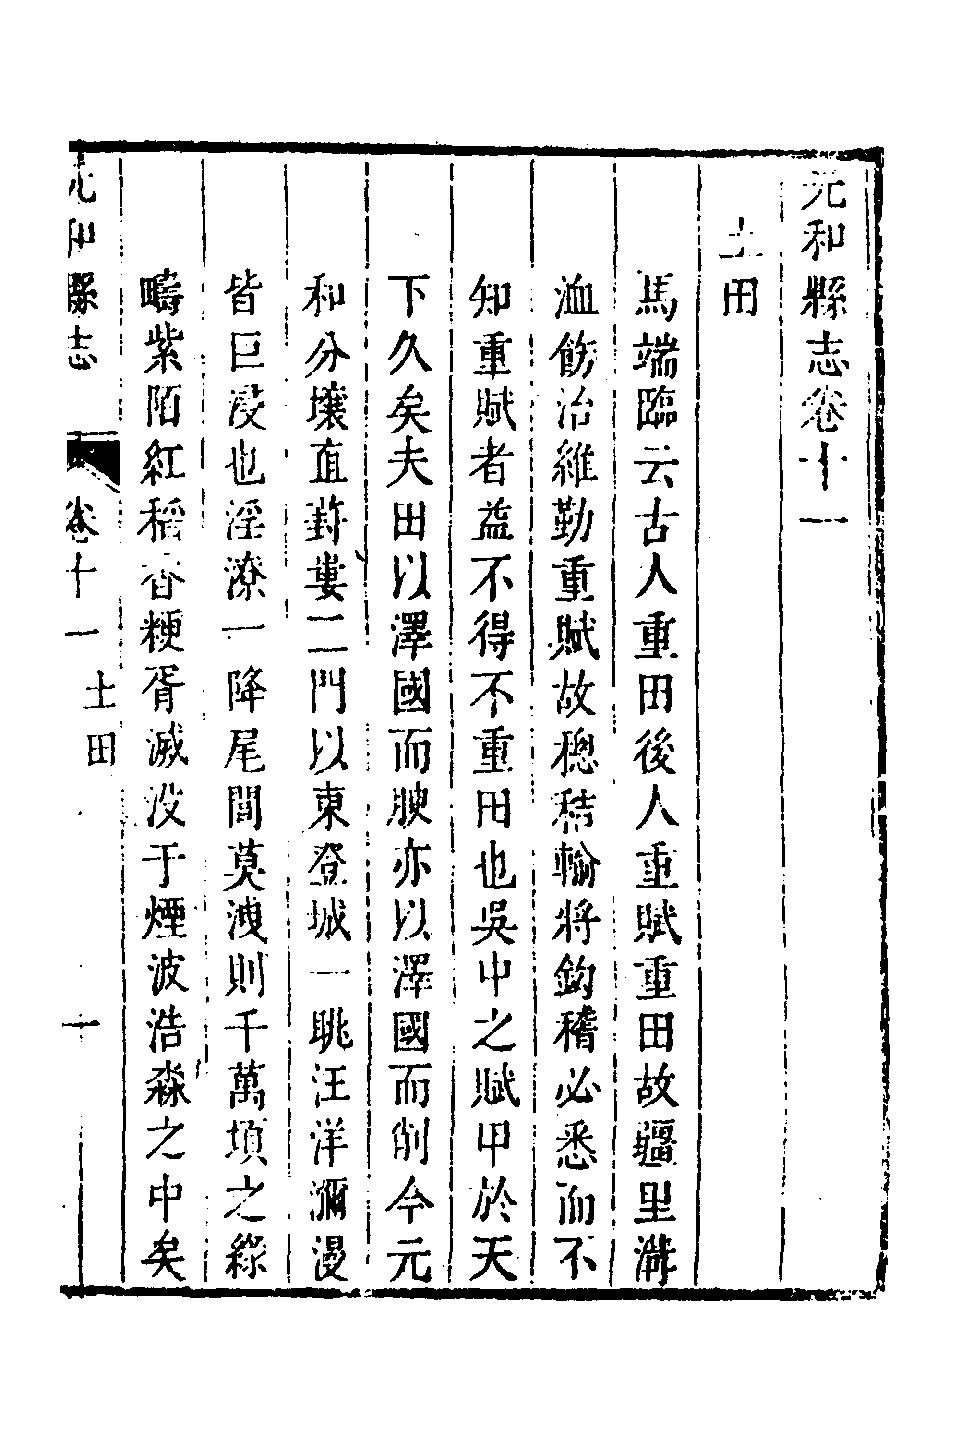 元和縣志卷十一
土田
馬端臨云古人重田後人重賦重田故疆里溝
洫飭治維勤重賦故緫秸輸將鈎稽必悉而不
知重賦者益不得不重田也吳中之賦甲於天
下久矣夫田以澤國而腴亦以澤國而削今元
和分壤直葑婁二門以東登城一眺汪洋瀰漫
皆巨浸也淫潦一降尾閭莫洩則千萬頃之綠
疇紫陌紅稻香粳胥滅没于煙波浩淼之中矣
元和縣志 卷十一 土田 一